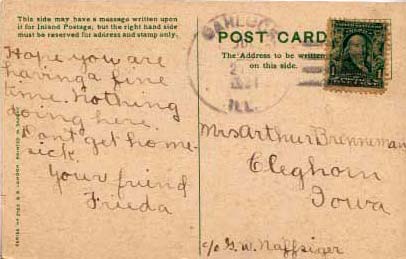 This side may have a message written upon
it for Inland Postage, but the right hand side
must be reserved for address and stamp only.
Hope you are
having a fine
time. Nothing
doing here.
Don't get home-
sick.
Your friend
Frieda
POST CARD
The Address to be written
on this side.
ILL.
Mrs Arthur Brenneman
Cleghorn
Iowa
c/o G. W. Naffziger